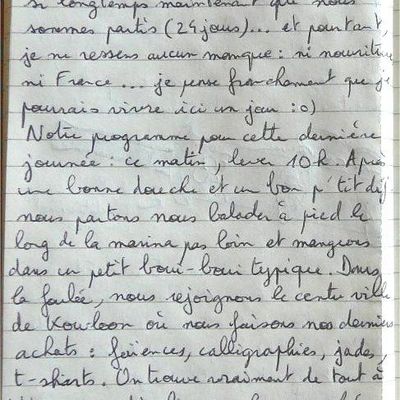 si longtemps maintenant que nous
sommes partis (24 jours)... et pourtant,
je ne ressens aucun manque : ni nourriture
ni France... je pense franchement que je
pourrais vivre ici un jour :o)
Notre programme pour cette dernière
journée : ce matin, lever 10h. Après
une bonne douche et un bon p'tit déj
nous partons nous balader à pied le
long de la marina pas loin et mangeons
dans un petit boui-boui typique. Dans
la foulée, nous rejoignons le centre ville
de Kowloon où nous faisons nos derniers
achats : faïences, calligraphies, jades,
t-shirts. On trouve vraiment de tout à